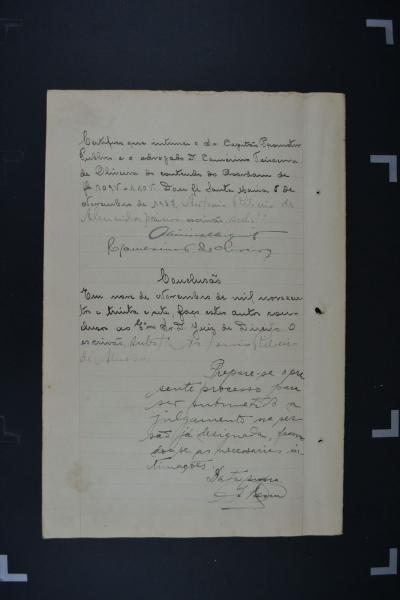 Certifico que intimei o dr. Capitão Promotor
Publico e o advogado D. Camerino Teixeira
de Oliveira do conteudo do Accordam de
fl. Dou fé. Santa Maria 8 de
Novembro de 1937. Antonio Ribeiro de
Almeida escrivão subst.
Camerino T. de Oliveira
Conclusão
Em nove de Novembro de mil novecen-
tos e trinta e sete, faço estes autos con-
clusos ao Exmo Sr. Dr. Juiz de Direito. O
escrivão subst. Antonio Ribeiro
de Almeida
Prepare-se o pre-
sente processo para
ser submettido a
julgamento na ses-
são já designada, fazen-
do-se as necessarias in-
timações.
Data supra